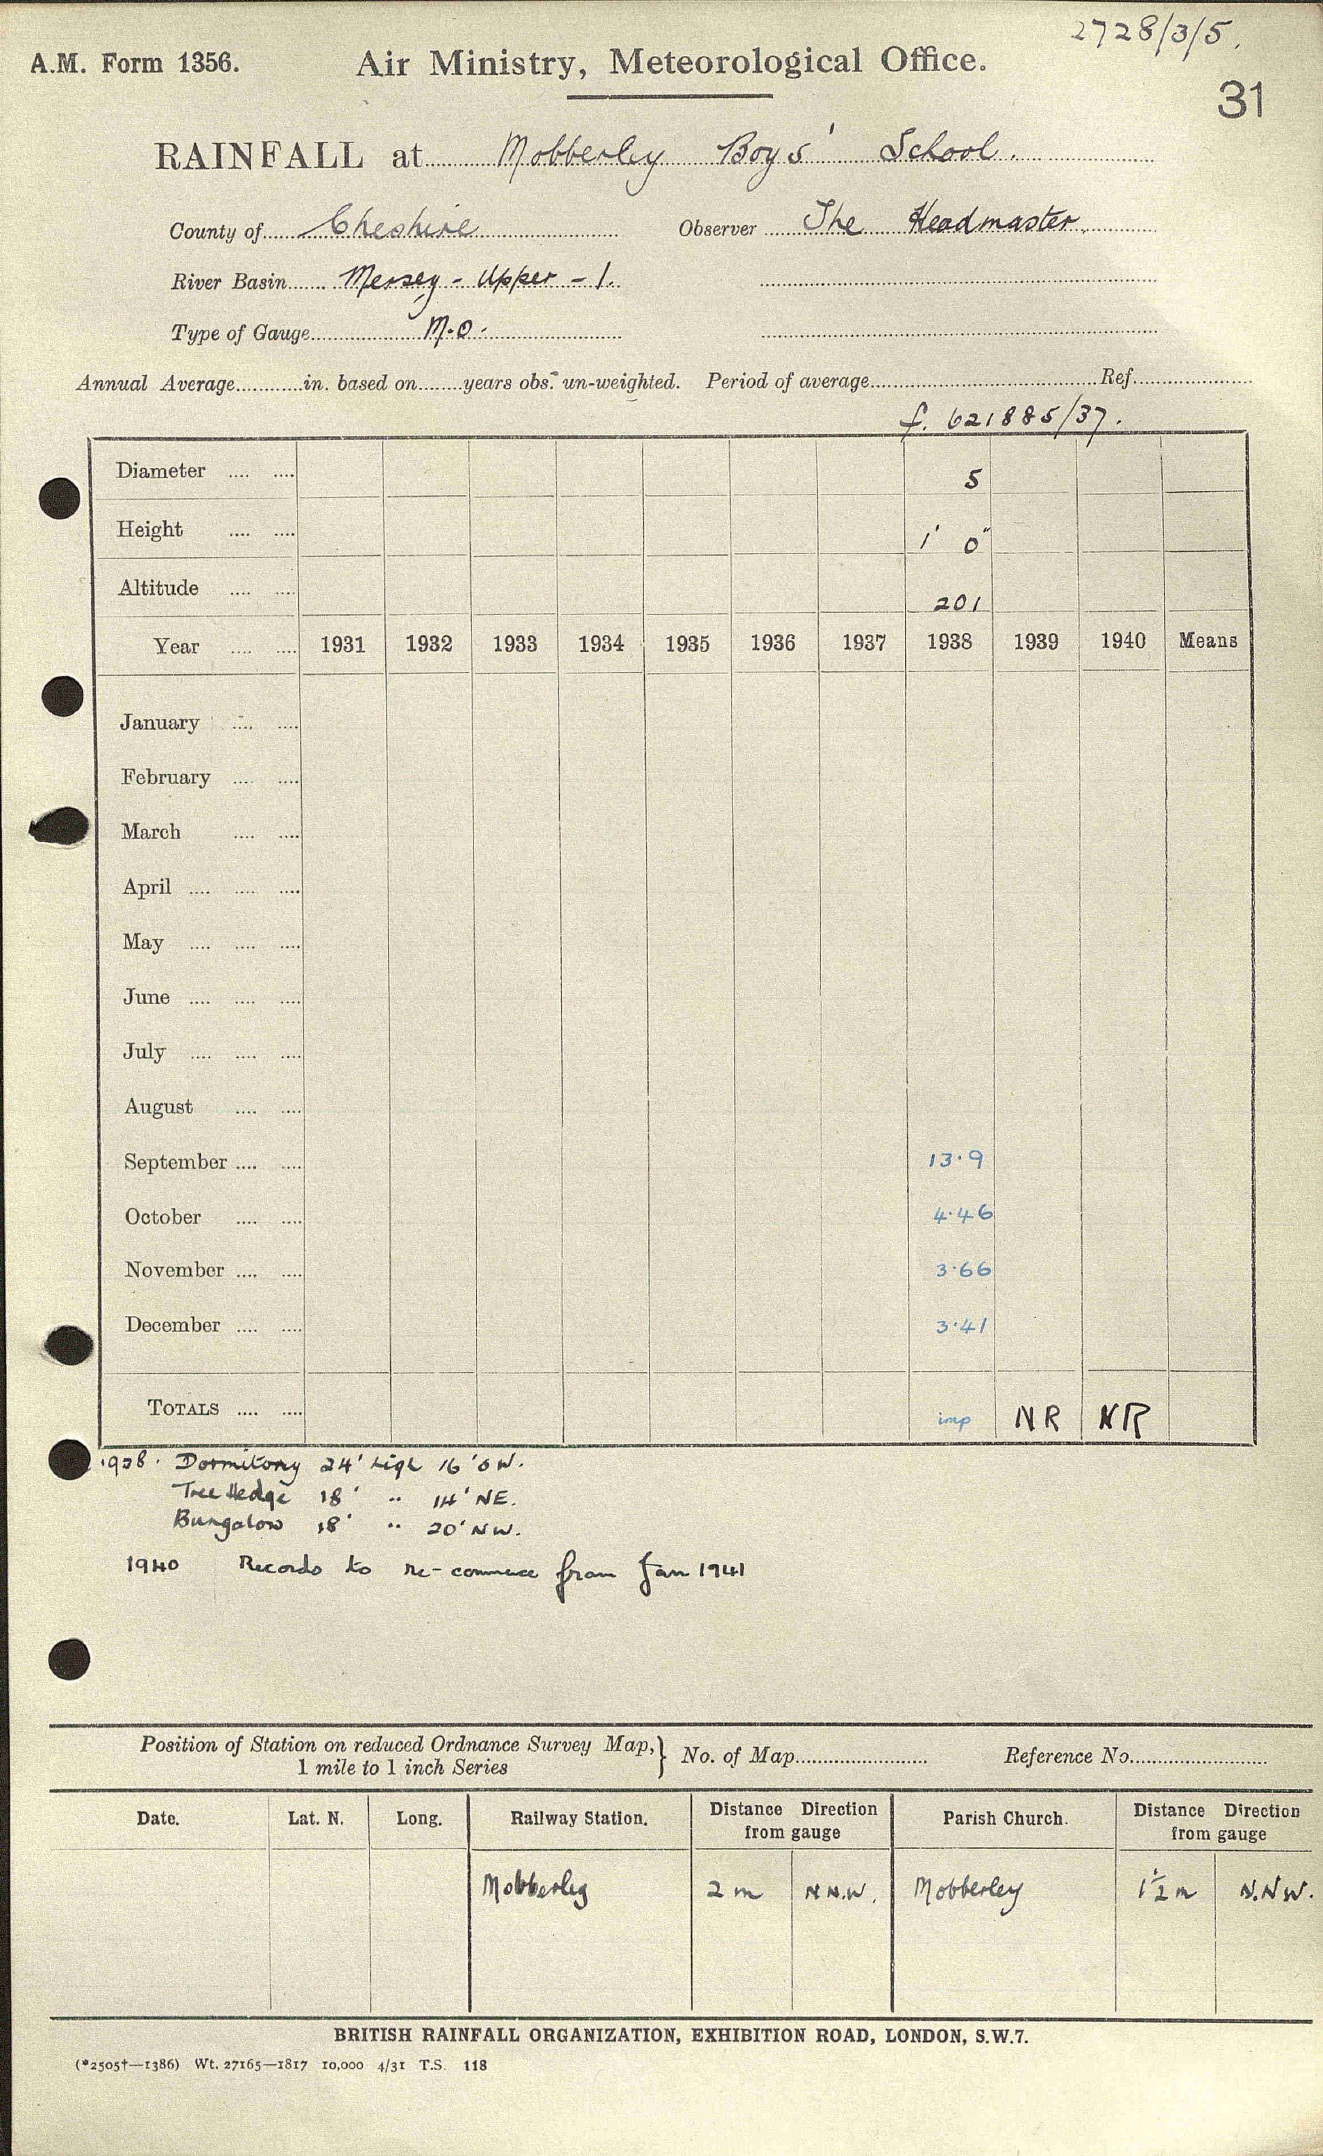 2728/3/5.
A.M. Form 1356. Air Ministry, Meteorological Office.
31
RAINFALL at Mobberley Boys' School.
County of Cheshire Observer The Headmaster.
River Basin Mersey - Upper - 1.
Type of Gauge M.O.
Annual Average in. based on years obs. un-weighted. Period of average Ref.
f. 621885/37.
Diameter 5
Height 1' 0"
Altitude 201
Year 1931 1932 1933 1934 1935 1936 1937 1938 1939 1940 Means
January
February
March
April
May
June
July
August
September 13.9
October 4.46
November 3.66
December 3.41
TOTALS imp NR NR
1938. Dormitory 24' high 16' SW.
Tree Hedge 18' " 14' NE.
Bungalow 18' " 20' NW.
1940 Records to re-commence from Jan 1941
Position of Station on reduced Ordnance Survey Map, } No. of Map Reference No.
1 mile to 1 inch Series
Date. Lat. N. Long. Railway Station. Distance Direction from gauge Parish Church. Distance Direction from gauge
Mobberley 2 m N N.W. Mobberley 1½ m N.N.W.
BRITISH RAINFALL ORGANIZATION, EXHIBITION ROAD, LONDON, S.W.7.
(*2505†—1386) Wt. 27165—1817 10,000 4/31 T.S. 118